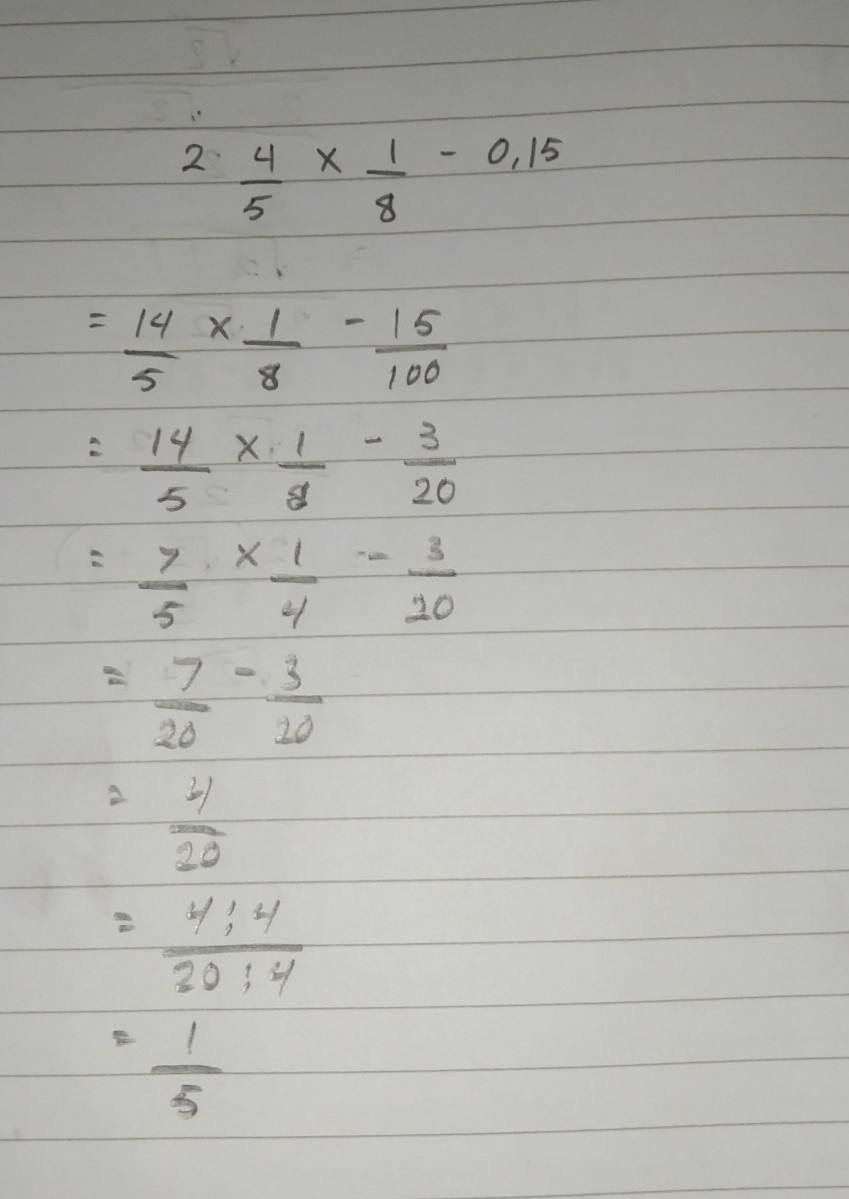 2 4/5 × 1/8 - 0,15
= 14/5 × 1/8 - 15/100
= 14/5 × 1/8 - 3/20
= 7/5 × 1/4 - 3/20
= 7/20 - 3/20
= 4/20
= 4:4/20:4
= 1/5